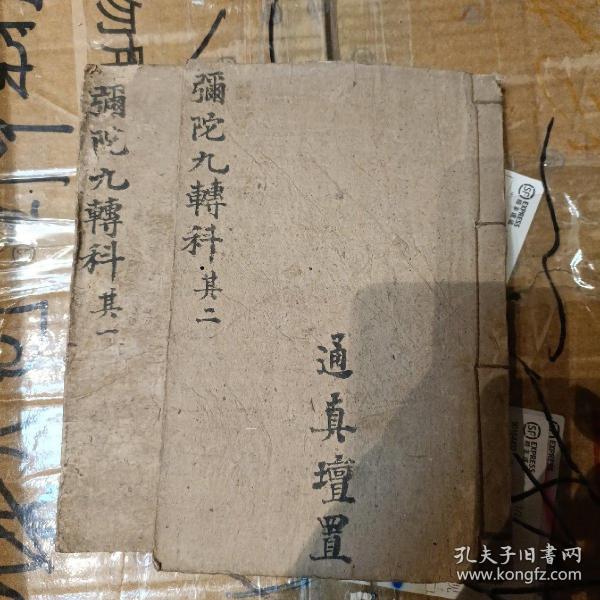 彌陀九轉科 其一
彌陀九轉科 其二
通真壇置
SF EXPRESS
SF EXPRESS
孔夫子旧书网
www.kongfz.com